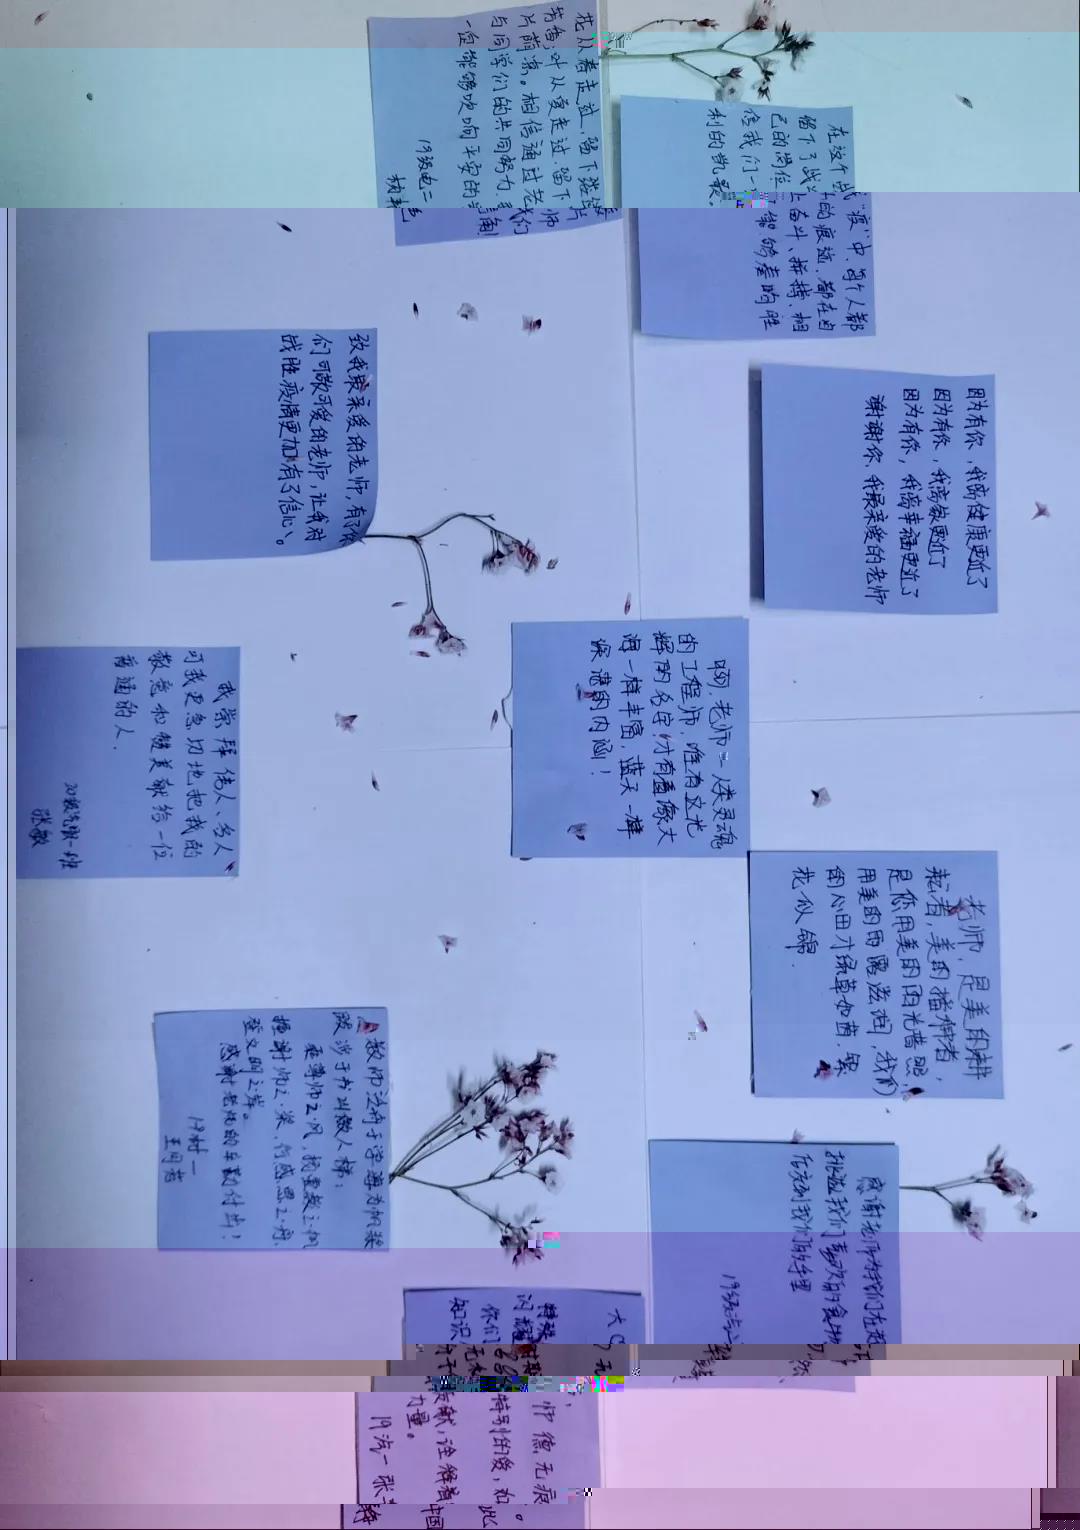 在这个战“疫”中,每个人都
留下了战斗的痕迹,都在自
己的岗位上奋斗、拼搏,相
信我们一定能够奏响胜
利的凯歌。
花从春走过,留下缕缕
芳香;叶从夏走过,留下片
片荫凉。相信通过老师
与同学们的共同努力,我们
一定能够吹响平安的号角!
19级电二
因为有你,我离健康更近了
因为有你,我离 更近了
因为有你,我离幸福更近了
谢谢你,我最亲爱的老师
致我最亲爱的老师,有了你
们可敬可爱的老师,让我对
战胜疫情更加有了信心。
啊,老师——人类灵魂
的工程师,唯有这光
辉的名字,才有着像大
海一样丰富,蓝天一样
深湛的内涵!
我崇拜伟人、名人
可我更急切地把我的
敬意和赞美献给一位
普通的人.
20级汽服一班
张敏
老师,是美的耕
耘者,美的播种者,
是您用美的阳光普照,
用美的雨露滋润,我们
的心田才绿草如茵,繁
花似锦.
教师泛舟于学海为帆桨
跋涉于书山做人梯;
乘薄师之风,扬重教之帆
摇谢师之桨,行感恩之舟,
登文明之岸。
感谢老师的辛勤付出!
感谢老师为我们在超
挑选我们喜欢的食物,然
后送到我们的手里
大爱无 ,师德无痕。
特殊时期,特别的爱,如此
闪耀
你们
知识,无
力量。
19汽一 张